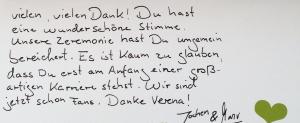 vielen, vielen Dank! Du hast
eine wunderschöne Stimme.
Unsere Zeremonie hast Du ungemein
bereichert. Es ist kaum zu glauben,
dass Du erst am Anfang einer groß-
artigen Karriere stehst. Wir sind
jetzt schon Fans. Danke Verena!
Jochen &